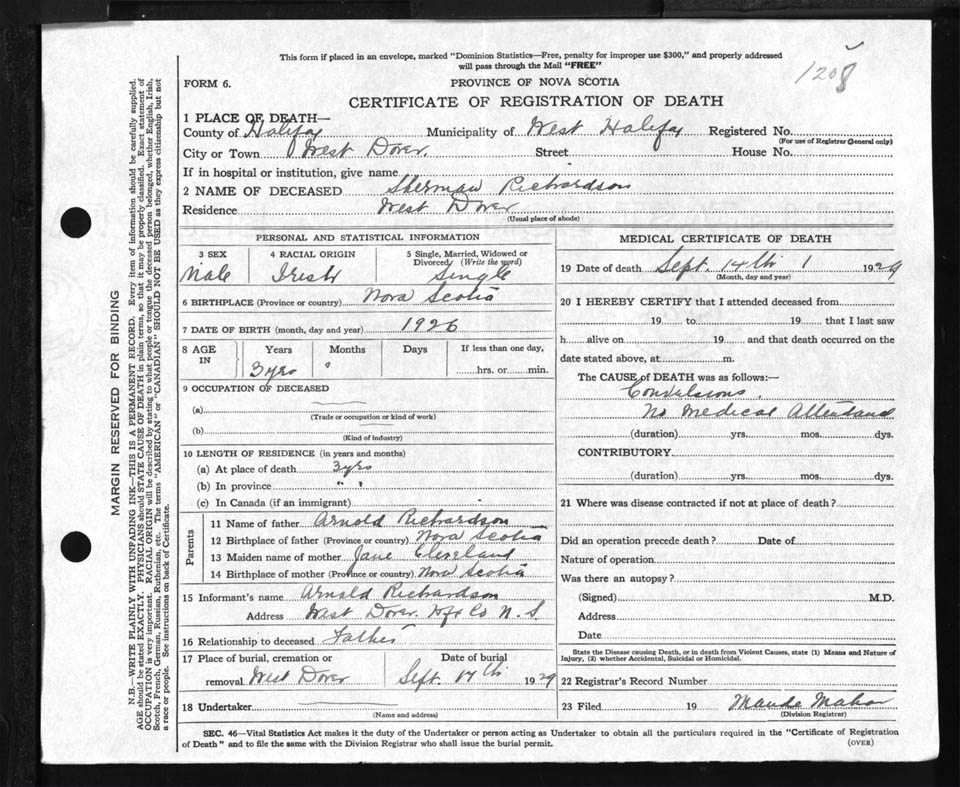 This form if placed in an envelope, marked "Dominion Statistics—Free, penalty for improper use $300," and properly addressed
will pass through the Mail "FREE"
1208
FORM 6.
PROVINCE OF NOVA SCOTIA
CERTIFICATE OF REGISTRATION OF DEATH
1 PLACE OF DEATH—
County of Halifax Municipality of West Halifax Registered No.
(For use of Registrar General only)
City or Town West Dover. Street House No.
If in hospital or institution, give name
2 NAME OF DECEASED Sherman Richardson
Residence West Dover
(Usual place of abode)
PERSONAL AND STATISTICAL INFORMATION
3 SEX 4 RACIAL ORIGIN 5 Single, Married, Widowed or
Divorced, (Write the word)
Male Irish Single
6 BIRTHPLACE (Province or country) Nova Scotia
7 DATE OF BIRTH (month, day and year) 1926
8 AGE IN Years Months Days If less than one day,
3 yrs hrs. or min.
9 OCCUPATION OF DECEASED
(a)
(Trade or occupation or kind of work)
(b)
(Kind of industry)
10 LENGTH OF RESIDENCE (in years and months)
(a) At place of death 3 yrs
(b) In province " "
(c) In Canada (if an immigrant)
Parents
11 Name of father Arnold Richardson
12 Birthplace of father (Province or country) Nova Scotia
13 Maiden name of mother Jane Cleveland
14 Birthplace of mother (Province or country) Nova Scotia
15 Informant's name Arnold Richardson
Address West Dover. Hfx Co N. S
16 Relationship to deceased Father
17 Place of burial, cremation or Date of burial
removal West Dover Sept. 17th 1929
18 Undertaker
(Name and address)
MEDICAL CERTIFICATE OF DEATH
19 Date of death Sept. 14th 1929
(Month, day and year)
20 I HEREBY CERTIFY that I attended deceased from
19 to 19 that I last saw
h alive on 19 and that death occurred on the
date stated above, at m.
The CAUSE of DEATH was as follows:—
Convulsions.
No Medical Attendand
(duration) yrs. mos. dys.
CONTRIBUTORY
(duration) yrs. mos. dys.
21 Where was disease contracted if not at place of death?
Did an operation precede death? Date of
Nature of operation
Was there an autopsy?
(Signed) M.D.
Address
Date
State the Disease causing Death, or in death from Violent Causes, state (1) Means and Nature of
Injury, (2) whether Accidental, Suicidal or Homicidal.
22 Registrar's Record Number
23 Filed 19 Maude Mahar
(Division Registrar)
SEC. 46—Vital Statistics Act makes it the duty of the Undertaker or person acting as Undertaker to obtain all the particulars required in the "Certificate of Registration
of Death" and to file the same with the Division Registrar who shall issue the burial permit. (OVER)
MARGIN RESERVED FOR BINDING
N.B.—WRITE PLAINLY WITH UNFADING INK—THIS IS A PERMANENT RECORD. Every item of information should be carefully supplied.
AGE should be stated EXACTLY. PHYSICIANS should STATE CAUSE OF DEATH in plain terms, so that it may be properly classified. Exact statement of
OCCUPATION is very important. RACIAL ORIGIN will be described by stating to what people or tongue the deceased person belonged, whether English, Irish,
Scotch, French, German, Russian, Ruthenian, etc. The terms "AMERICAN" or "CANADIAN" SHOULD NOT BE USED as they express citizenship but not
a race or people. See instructions on back of Certificate.